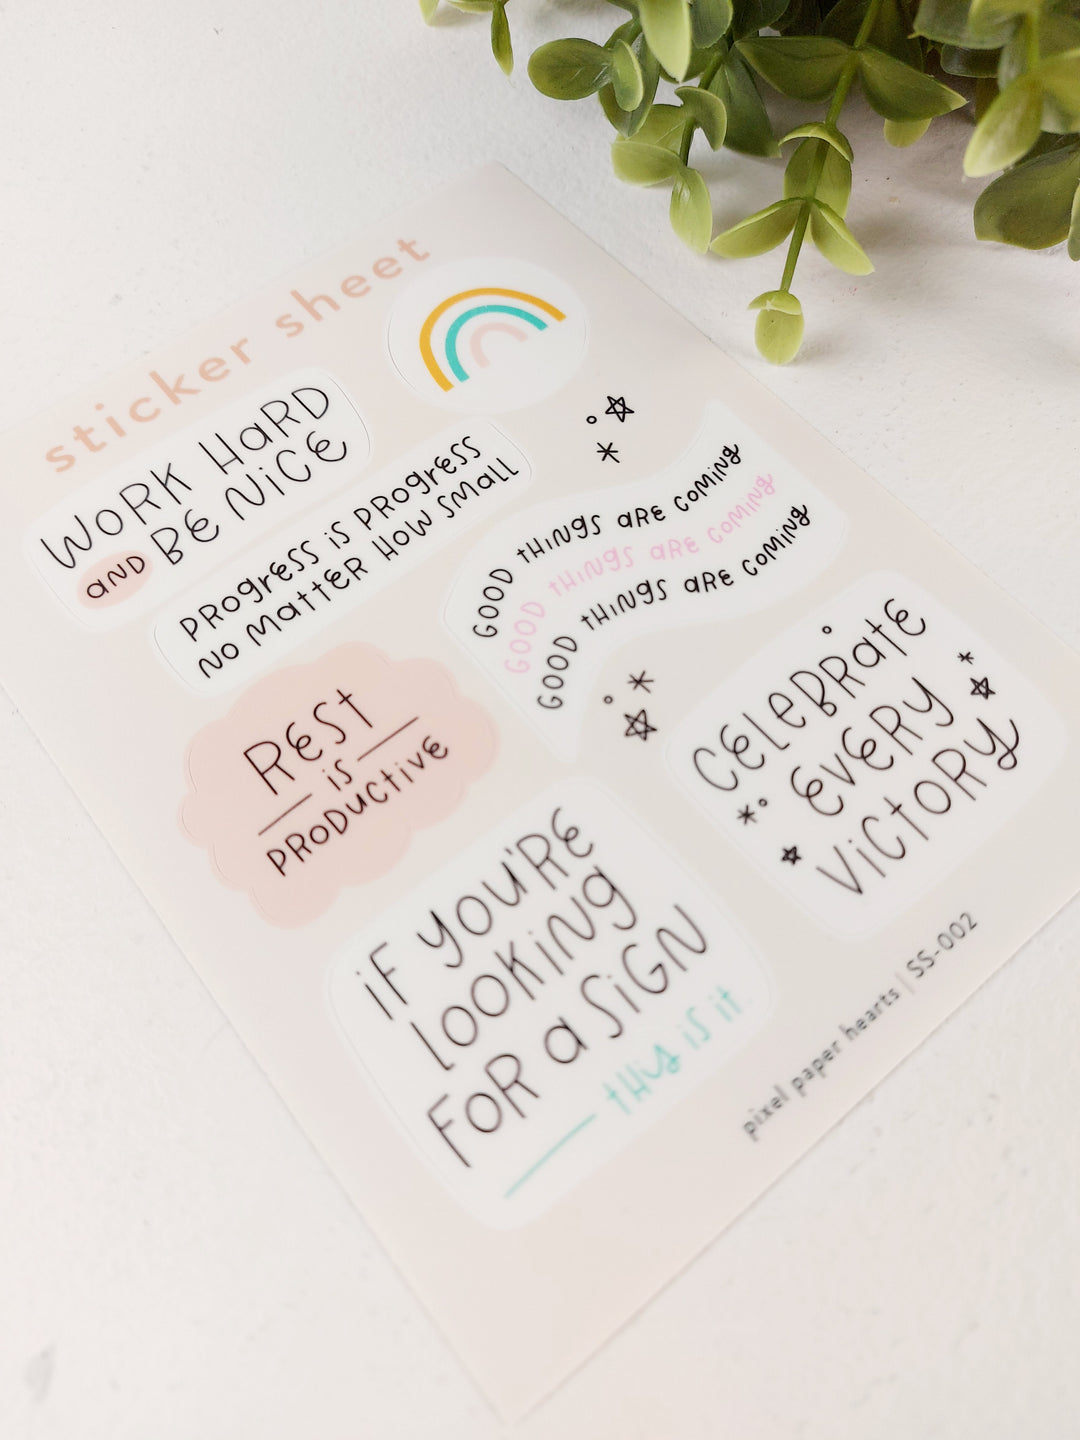 sticker sheet
WORK HARD
AND BE NICE
PROGRESS iS PROGRESS
NO MATTER HOW SMALL
GOOD THINGS ARE COMING
GOOD THINGS ARE COMING
GOOD THINGS ARE COMING
REST
iS
PRODUCTiVE
CELEBRATE
EVERY
ViCTORY
iF YOU'RE
LOOKiNG
FOR a SiGN
THiS iS iT.
pixel paper hearts | SS-002